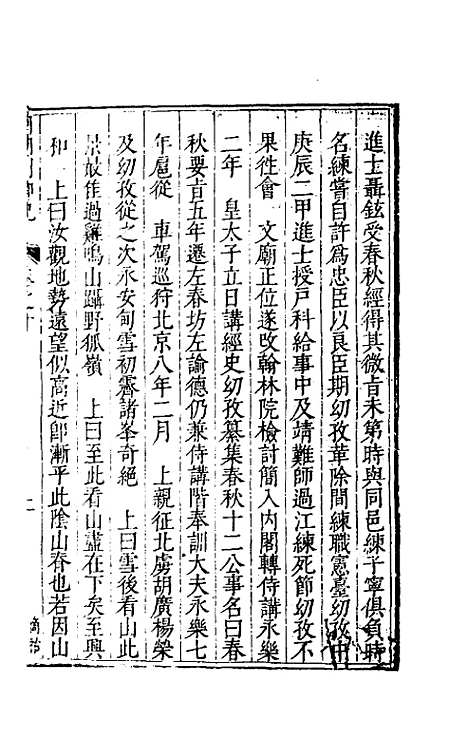 進士聶鉉受春秋經得其微㫖未第時與同邑練子寧俱負時
名練嘗自許爲忠臣以良臣期幼孜革除間練職憲臺幼孜中
庚辰二甲進士授戸科給事中及靖難師過江練死節幼孜不
果徃會　文廟正位遂改翰林院檢討簡入内閣轉侍講永樂
二年　皇太子立日講經史幼孜纂集春秋十二公事名曰春
秋要㫖五年遷左春坊左諭德仍兼侍講階奉訓大夫永樂七
年扈從　車駕巡狩北京八年二月　上親征北虜胡廣楊榮
及幼孜從之次永安甸雪初霽諸峯奇絕　上曰雪後看山此
景最佳過雞鳴山躡野狐嶺　上曰至此看山盡在下矣至興
和　上曰汝觀地勢遠望似高近卽漸平此陰山脊也若因山